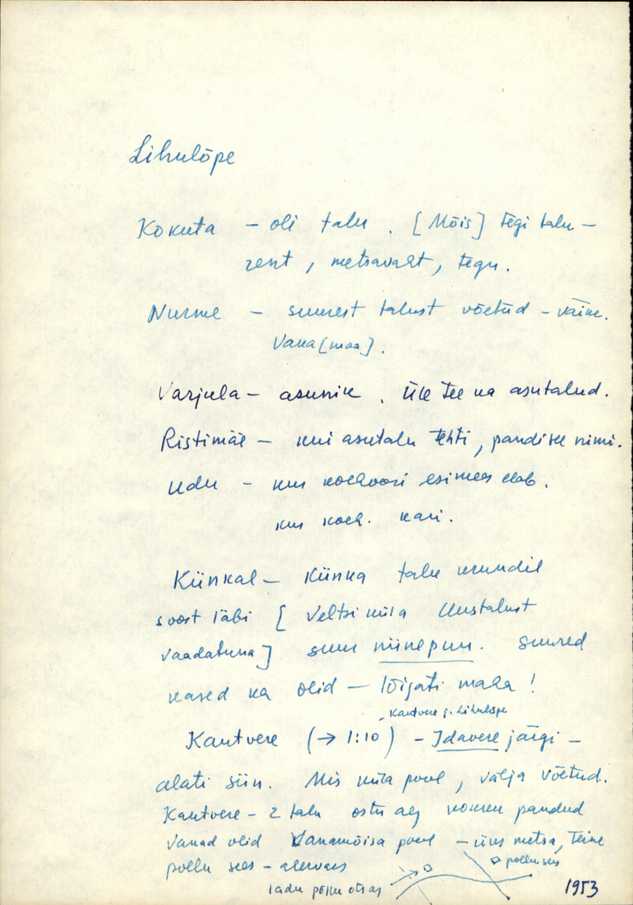 Lihulõpe
Kokuta – oli talu. [Mõis] tegi talu –
rent, metsavaht, tegu.
Nurme – suurest talust võetud – väike.
Vana[maa].
Varjula – asunik. Üle tee ka asutalud.
Ristimäe – kui asutalu tehti, pandi see nimi.
Udu – kus kolhoosi esimees elab.
kus kolh. kari.
Künkal – Künka talu krundil
soost läbi [Veltsi küla Uustalust
vaadatuna] suur niinepuu. Suured
kased ka olid – lõigati maha!
Kantvere j. Lihulõpe
Kantvere (→ 1:10) – Idavere järgi –
alati siin. Mis küla pool, välja võetud.
Kantvere – 2 talu ostu aeg nomen pandud
Vanad olid Vanamõisa pool – üks metsa, teine
põllu sees – alevaes
põllu sees
ladu põllu otsas
1953